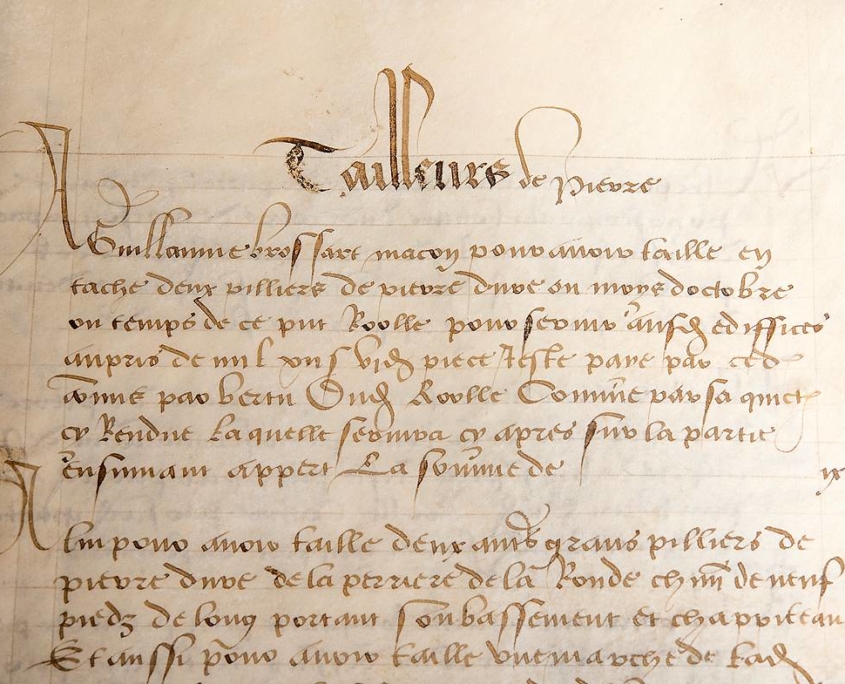 Tailleurs de pierre
A Guillaume brossart macon pour avoir taille en
tache deux pilliers de pierre dure on moys doctobre
ou temps de ce pnt Roolle pour servir ausd edifices
au pris de piece Jceste paye par ced
comis par vertu Dud Roolle Comme par sa quict
cy Rendue laquelle servira cy apres sur la partie
ensuivant appert La somme de ix
A luy pour avoir taille deux aut's grans pilliers de
pierre dure de la perriere de la Ronde ch'un de neuf
piedz de long portant soubassement et chappiteau
Et aussi pour avoir taille une marche de lad